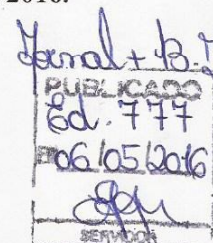 2016.
Jornal + B.
PUBLICADO
Ed. 777
EM 06/05/2016
SERVIDOR